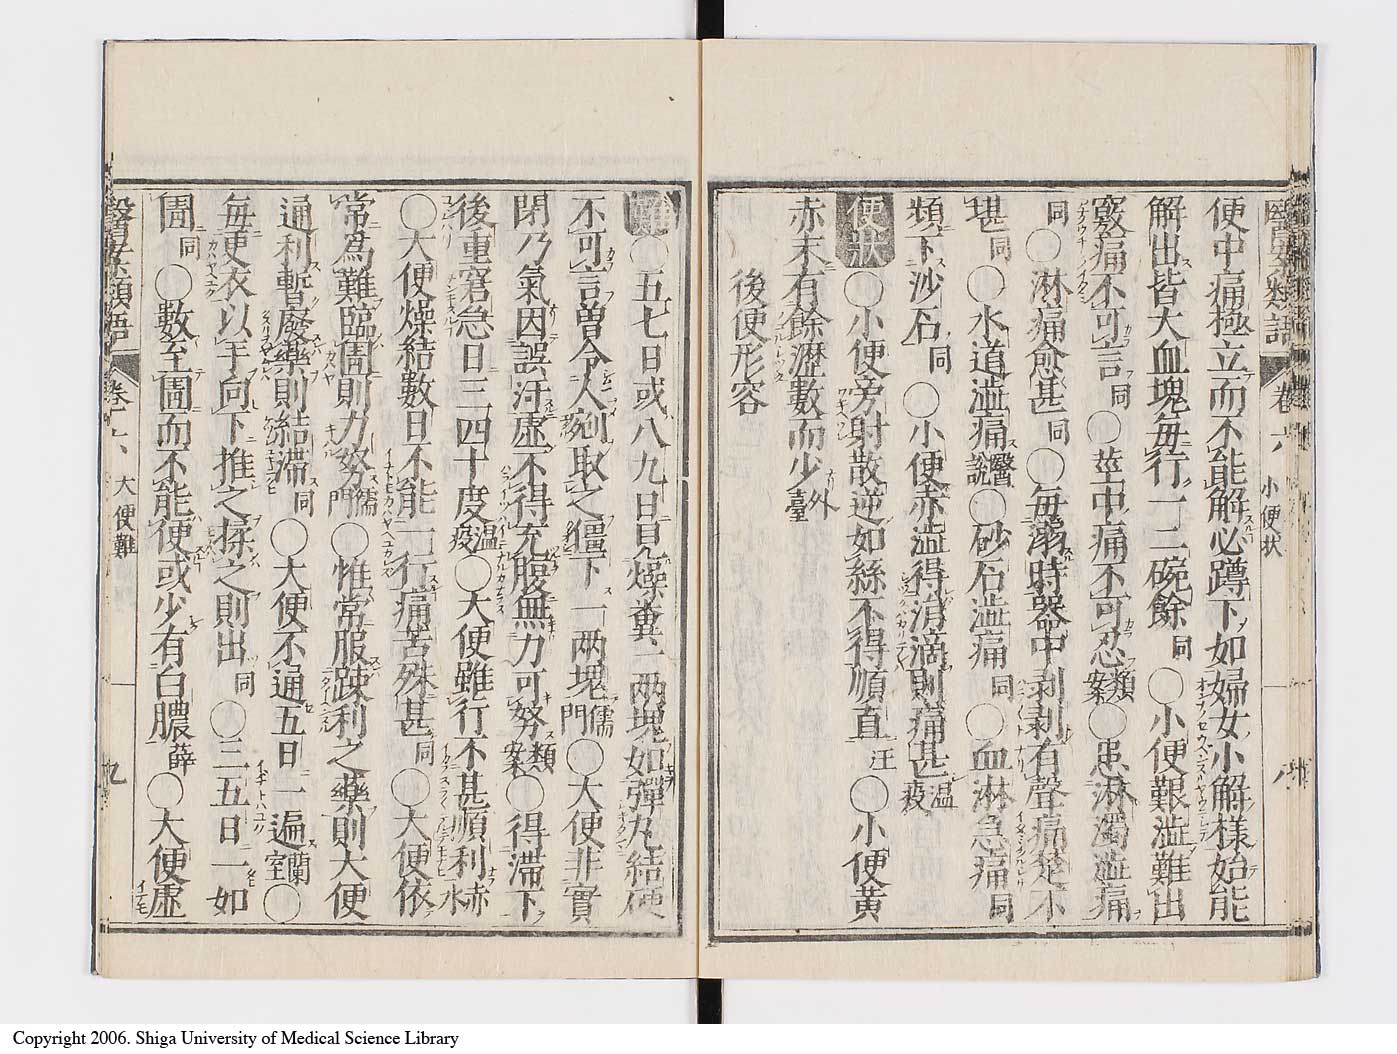 醫案類語 卷六 小便状 八
便中痛極立而不能解必蹲下如婦女小解樣始能
解出皆大血塊每行一二碗餘同○小便艱澁難出
竅痛不可言同○莖中痛不可忍類案○患淋濁澁痛
同○淋痛愈甚同○每溺時器中剥剥有聲痛楚不
堪同○水道澁痛醫說○砂石澁痛同○血淋急痛同
頻下沙石同○小便赤澁得消滴則痛甚温疫
便状○小便旁射散逆如絲不得順直汪○小便黄
赤末有餘瀝數而少外臺
後便形容
難○五七日或八九日見燥糞一兩塊如彈丸結硬
不可言曽令人剜取之僵下一两塊儒門○大便非實
閉乃氣因誤汗虛不得充腹無力可努類案○得滞下
後重窘急日三四十度温疫○大便雖行不甚順利赤水
○大便燥結數日不能一行痛苦殊甚同○大便依
常爲難臨圊則力努儒門○惟常服踈利之藥則大便
通利暫廢藥則結滞同○大便不通五日一遍蘭室○
每更衣以手向下推之揉之則出同○三五日一如
圊同○數至圊而不能便或少有白膿薛○大便虛
醫案類語 卷六 大便難 九
Copyright 2006. Shiga University of Medical Science Library